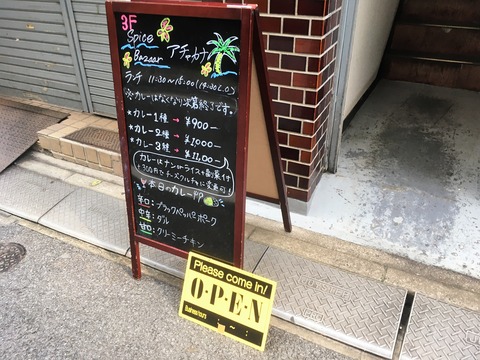 3F
Spice
Bazaar アチャカナ
ランチ 11:30~15:00(14:30L.O)
※カレーはなくなり次第終了です。
*カレー1種 → ¥900-
*カレー2種 → ¥1000-
*カレー3種 → ¥11,00-
カレーはナンorライス+副菜付
+300円でチーズクルチャに変更可!
本日のカレー
辛口:ブラックペッパーポーク
中辛:ダル
甘口:クリーミーチキン
Please come in!
O·P·E·N